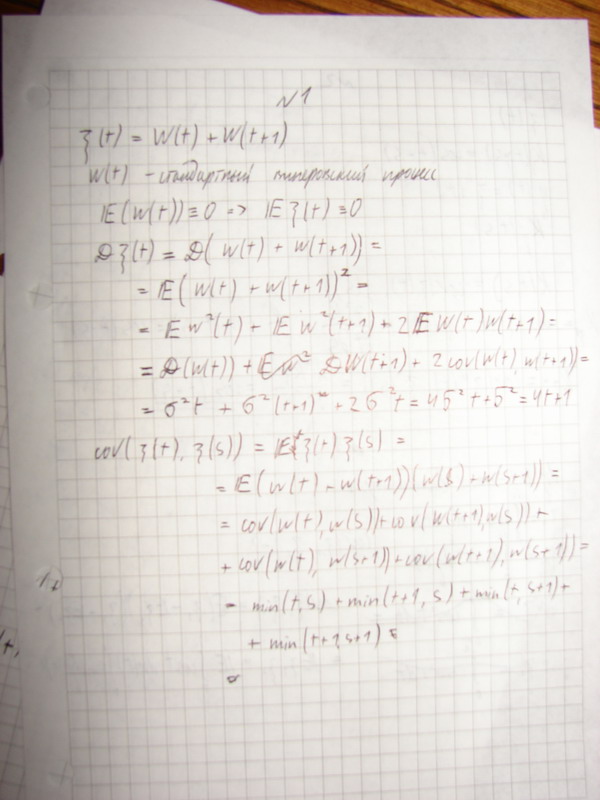 N1
ξ(t) = W(t) + W(t+1)
W(t) - стандартный винеровский процесс
E(W(t)) ≡ 0 => Eξ(t) ≡ 0
Dξ(t) = D(W(t) + W(t+1)) =
= E(W(t) + W(t+1))² =
= E W²(t) + E W²(t+1) + 2 E W(t)W(t+1) =
= D(W(t)) + D W(t+1) + 2 cov(W(t), W(t+1)) =
= σ²t + σ²(t+1) + 2σ²t = 4σ²t + σ² = 4t+1
cov(ξ(t), ξ(s)) = E ξ(t) ξ(s) =
= E(W(t) + W(t+1))(W(s) + W(s+1)) =
= cov(W(t), W(s)) + cov(W(t+1), W(s)) +
+ cov(W(t), W(s+1)) + cov(W(t+1), W(s+1)) =
= min(t,s) + min(t+1, s) + min(t, s+1) +
+ min(t+1, s+1) =
=